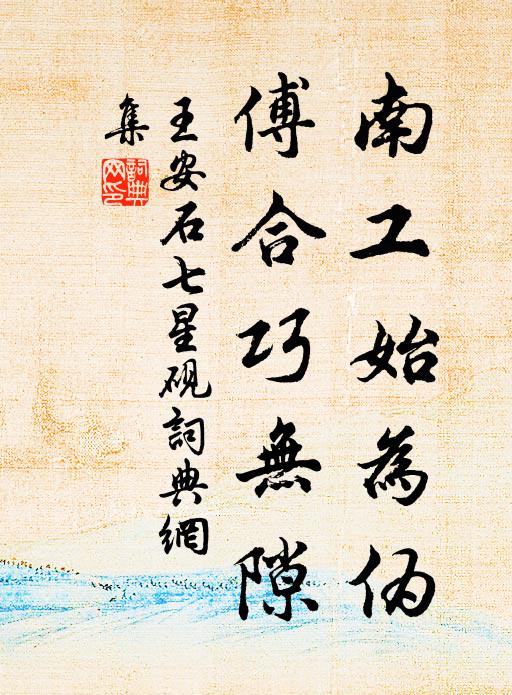 南工始為偽
傅合巧無隙
王安石七星硯詞典網
集
詞典
网印